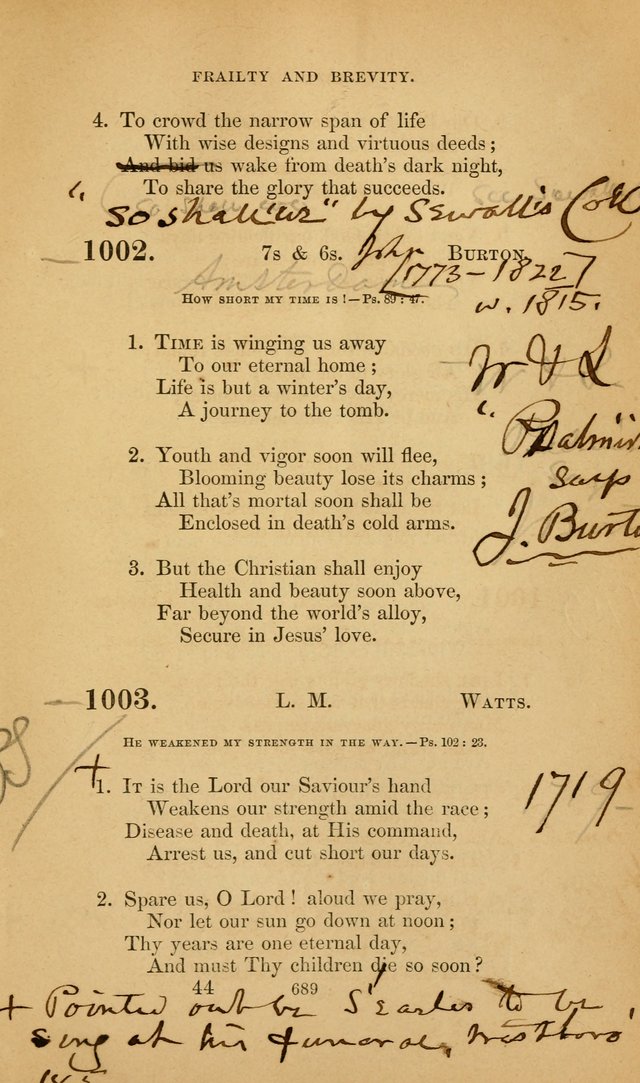 FRAILTY AND BREVITY.
4. To crowd the narrow span of life
With wise designs and virtuous deeds;
And bid us wake from death's dark night,
To share the glory that succeeds.
"So shall us" by Sewall's Coll
1002. 7s & 6s. John BURTON.
[1773-1822]
Amsterdam
HOW SHORT MY TIME IS!—Ps. 89: 47.
w. 1815.
1. TIME is winging us away
To our eternal home;
Life is but a winter's day,
A journey to the tomb.
"Psalmis
says
J. Burto
2. Youth and vigor soon will flee,
Blooming beauty lose its charms;
All that's mortal soon shall be
Enclosed in death's cold arms.
3. But the Christian shall enjoy
Health and beauty soon above,
Far beyond the world's alloy,
Secure in Jesus' love.
1003. L. M. WATTS.
HE WEAKENED MY STRENGTH IN THE WAY.—Ps. 102: 23.
+
1. IT is the Lord our Saviour's hand
Weakens our strength amid the race;
Disease and death, at His command,
Arrest us, and cut short our days.
1719
2. Spare us, O Lord! aloud we pray,
Nor let our sun go down at noon;
Thy years are one eternal day,
And must Thy children die so soon?
44 689
+ Pointed out by S. Earles to be
sung at his funeral, Westboro'